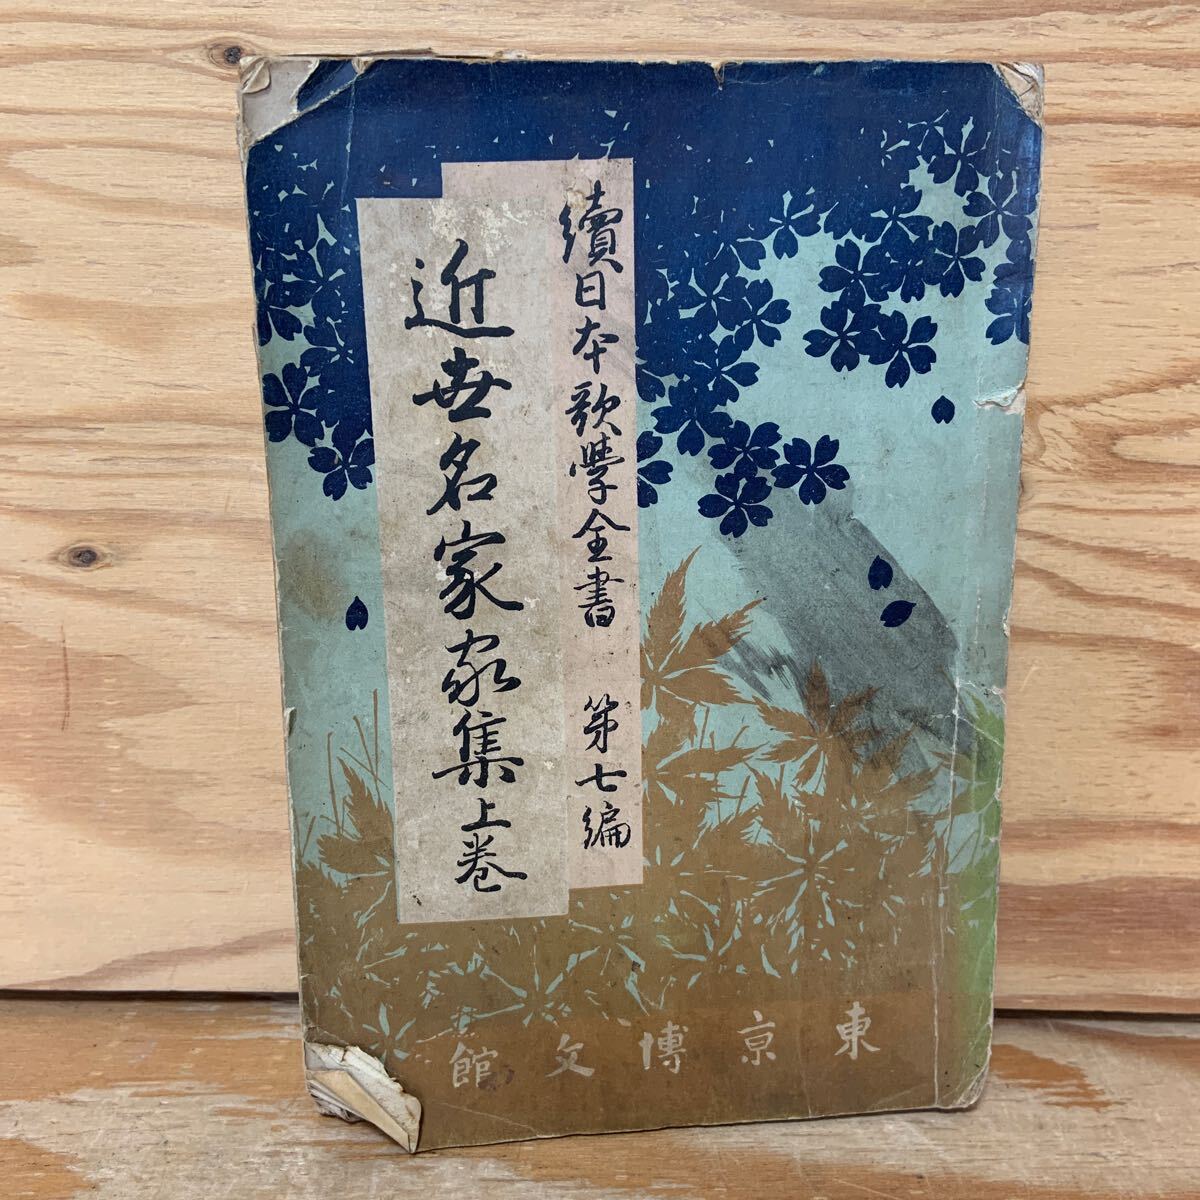 續日本歌學全書 第七編
近世名家家集上卷
東京博文館